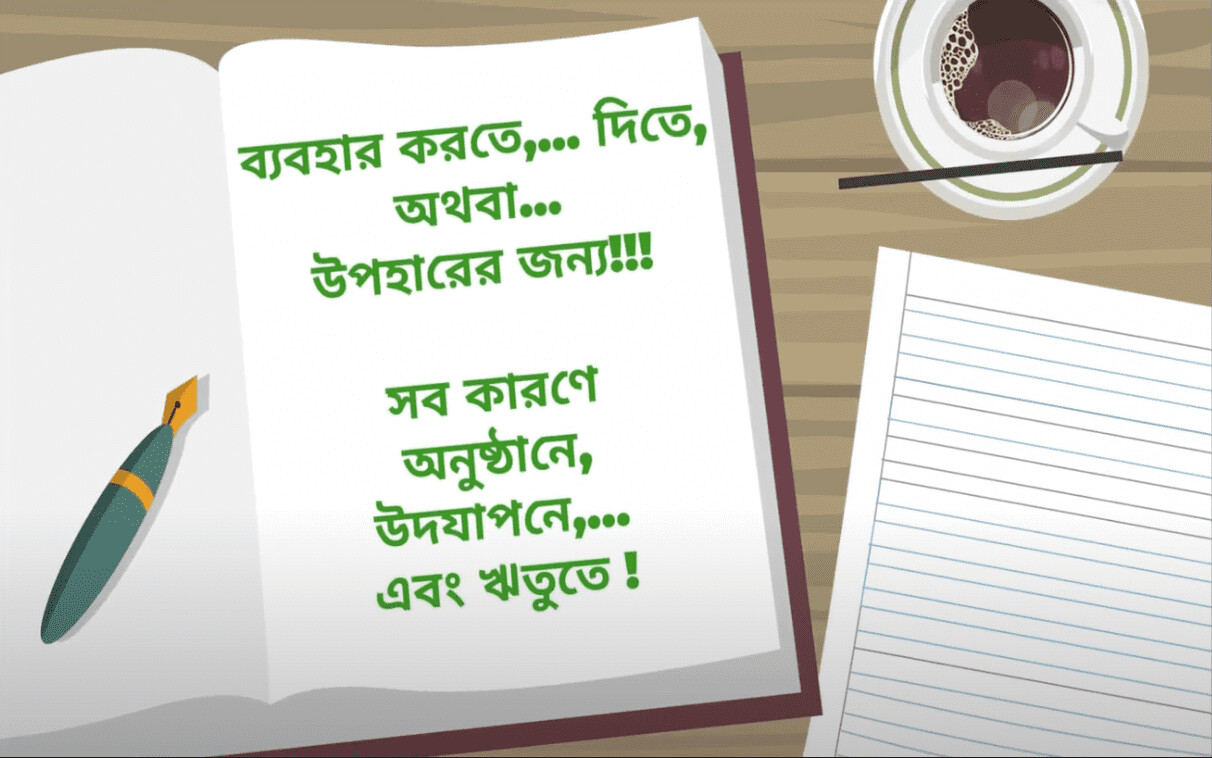 ব্যবহার করতে,... দিতে,
অথবা...
উপহারের জন্য!!!
সব কারণে
অনুষ্ঠানে,
উদযাপনে,...
এবং ঋতুতে !